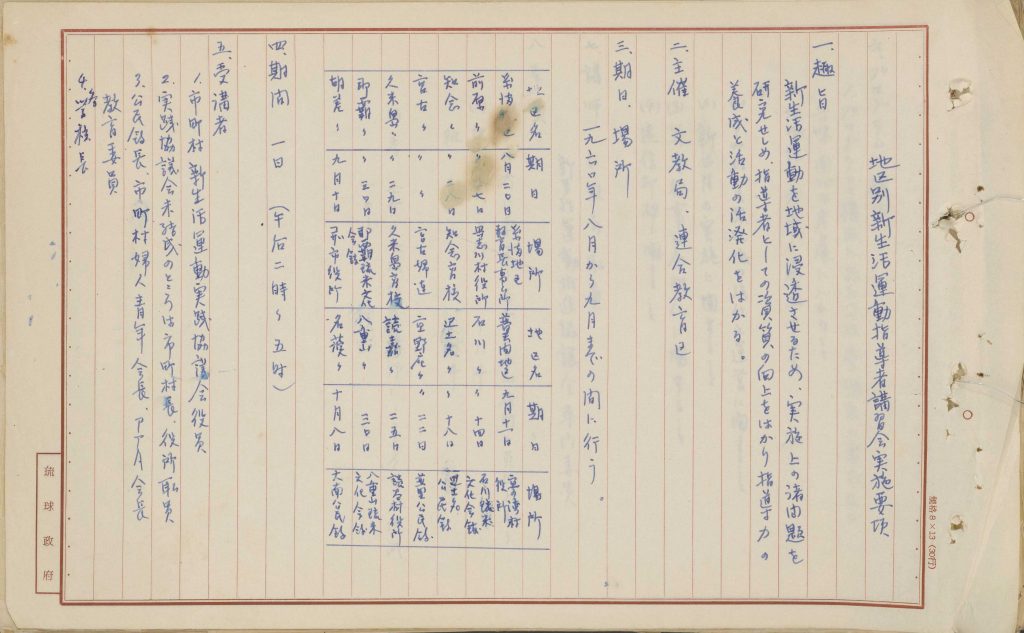 地区別新生活運動指導者講習会実施要項
一、趣旨
新生活運動を地域に浸透させるため、実施上の諸問題を
研究せしめ、指導者としての資質の向上をはかり指導力の
養成と活動の活発化をはかる。
二、主催 文教局、連合教育区
三、期日、場所
一九六〇年八月から九月までの間に行う。
地区名 期日 場所 地区名 期日 場所
糸満地区 八月二〇日 糸満地区教育長事務所 普天間地区 九月十一日 宜野湾村役所
前原〃 〃 七日 具志川村役所 石川〃 〃 十四日 石川琉米文化会館
知念〃 〃 二八日 知念高校 辺土名〃 〃 十八日 辺土名公民館
宮古〃 〃 〃 宮古婦連 宜野座〃 〃 二二日 公民館
久米島〃 〃 二九日 久米島高校 読嘉〃 〃 二五日 読谷村役所
那覇〃 〃 三〇日 那覇琉米文化会館 八重山〃 〃 三〇日 八重山琉米文化会館
胡差〃 九月十日 市役所 名護〃 十月八日 大南公民館
四、期間 一日 (午后二時〜五時)
五、受講者
1. 市町村新生活運動実践協議会役員
2. 実践協議会未結成のところは市町村長、役所職員
3. 公民館長、市町村婦人青年会長、PTA会長
教育委員
4. 各学校長
琉球政府
規格8×13(30行)